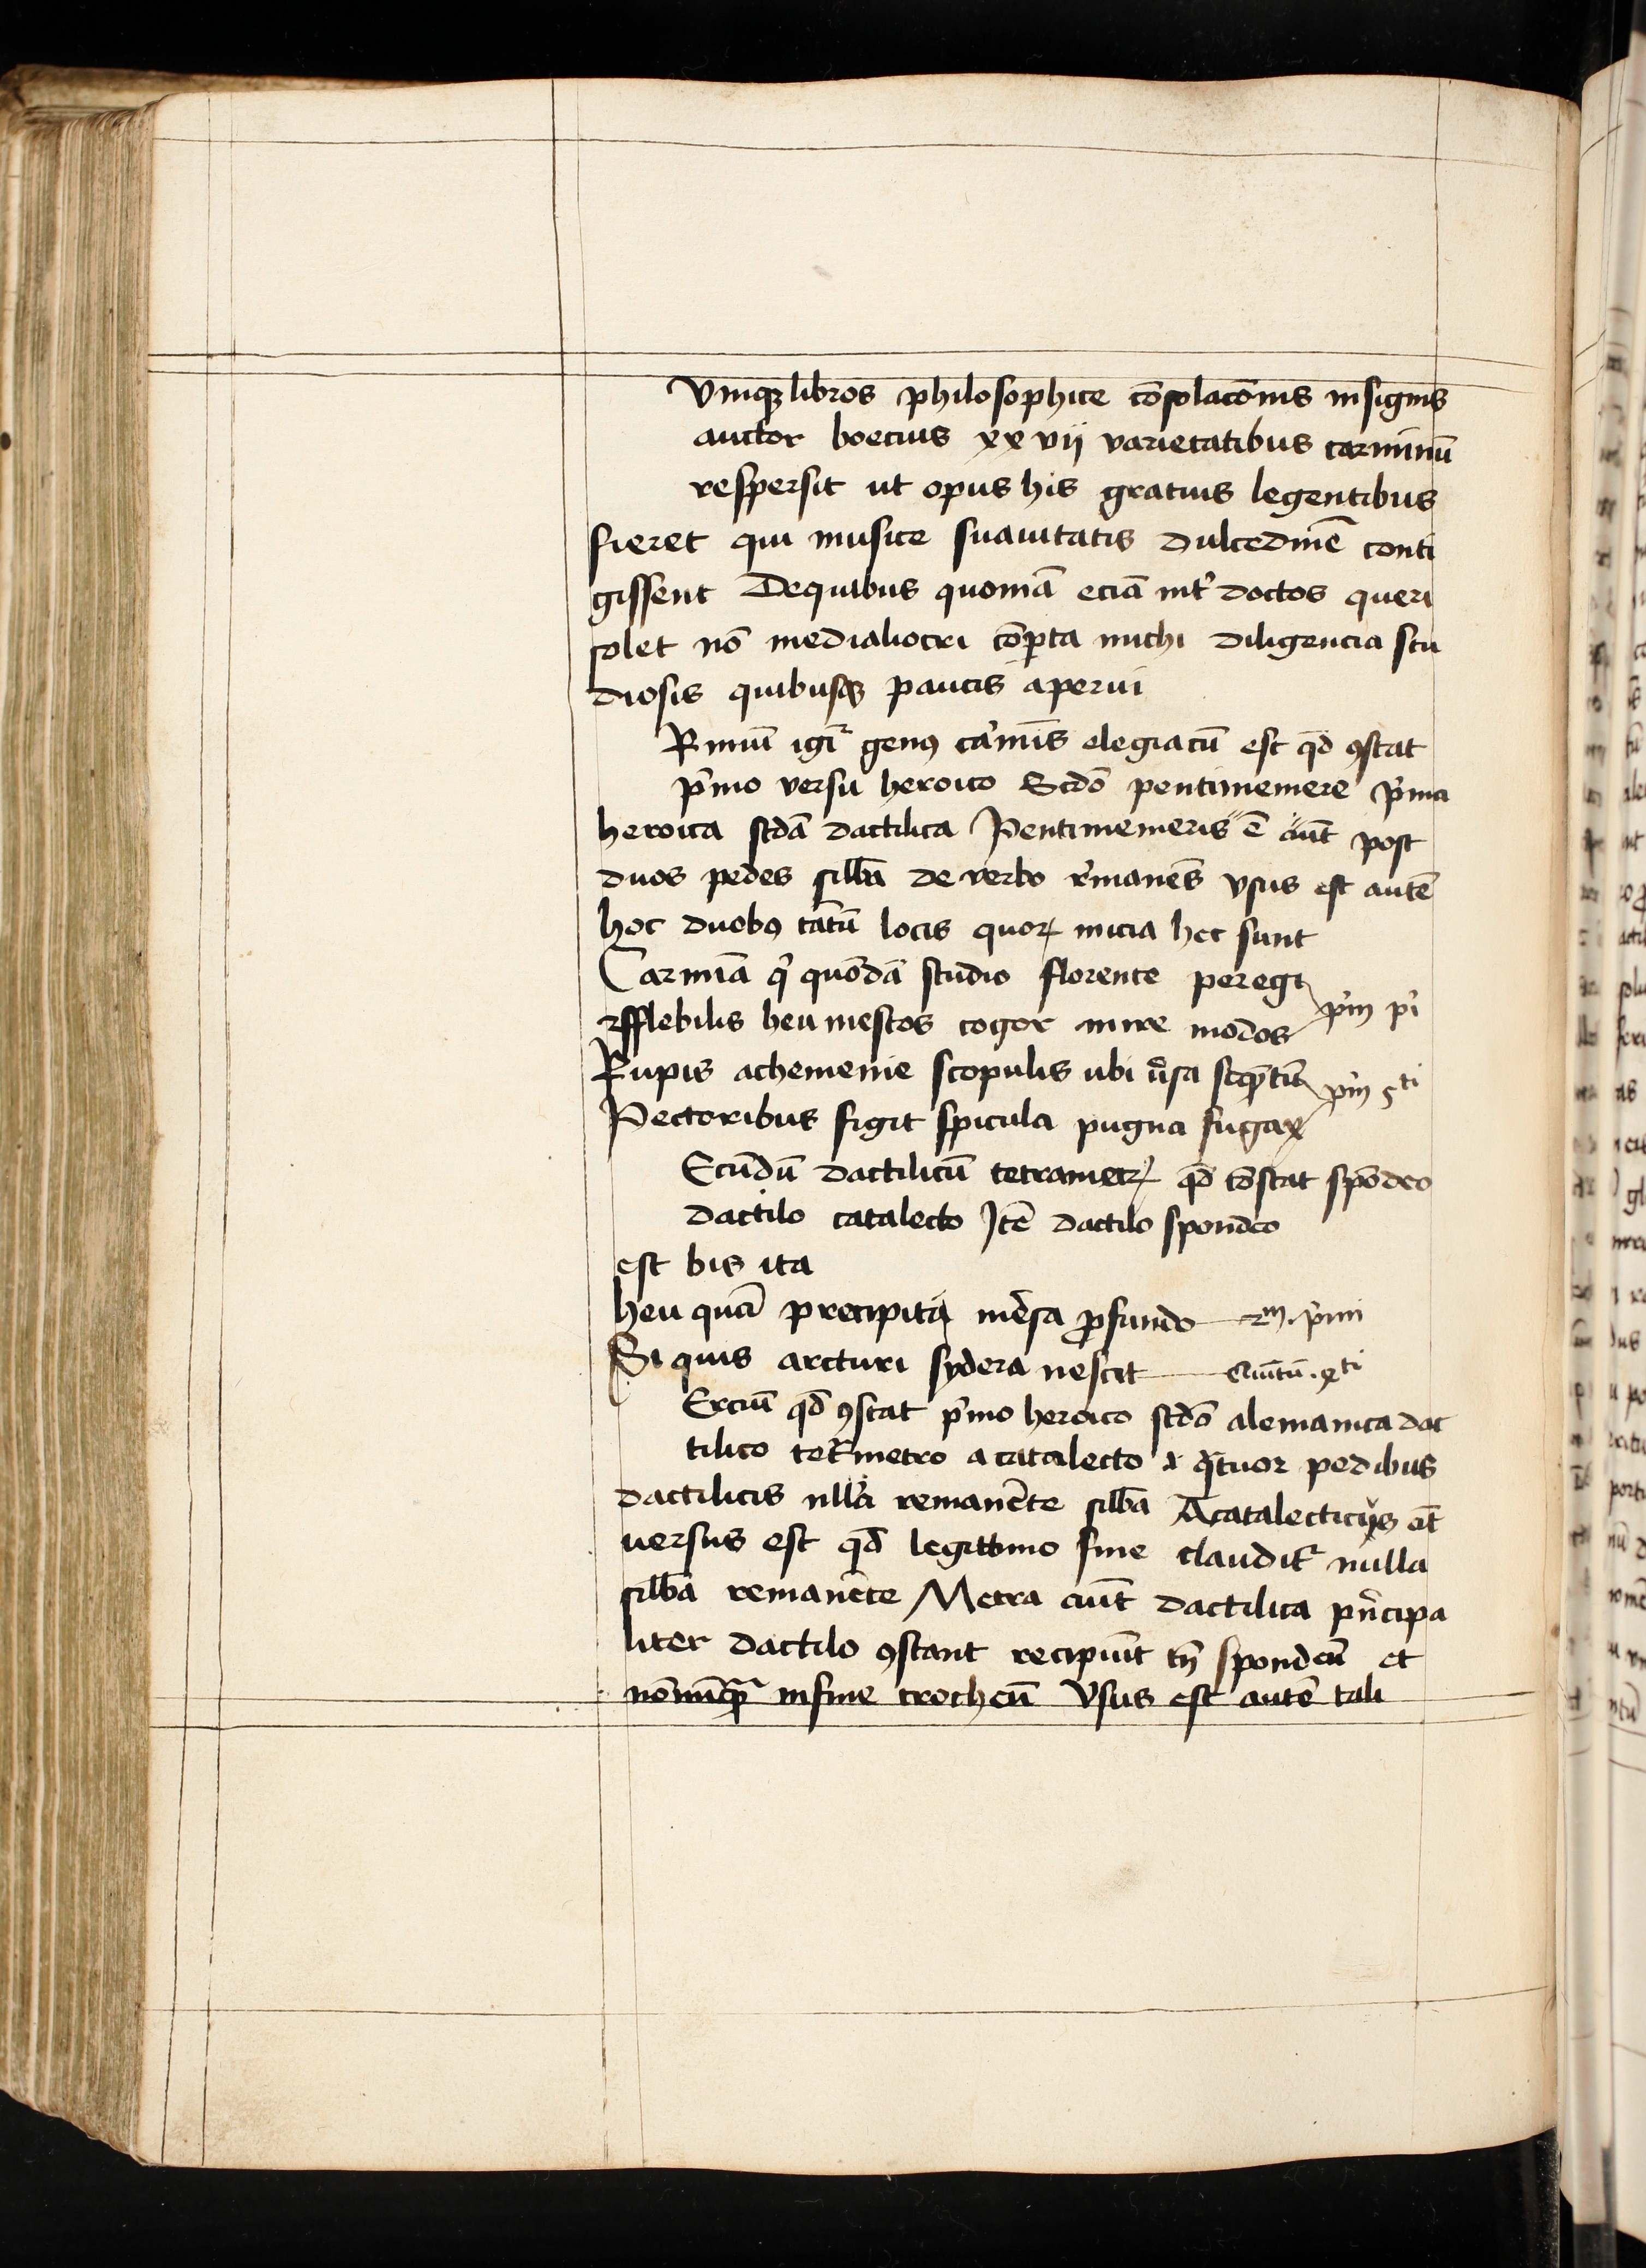 Vinqꝫ libros philosophice cōsolacōnis insignis
auctor boecius xxvij varietatibus carminū
respersit ut opus his gratius legentibus
fieret qui musice suauitatis dulcedinē conti
gissent Dequibus quoniā eciā int᷑ doctos queri
solet nō medialiocri cōꝑta michi diligencia stu
diosis quibusqꝫ paucis aperui
Rimū igr̄ genꝰ car̄mis elegiacū est qd̄ ꝯstat
p̄mo versu heroico Scdō pentimemere p̄ma
heroica scdā dactilica Pentimemeris ē aūt post
duos pedes silłba de verbo r̄manēs vsus est autē
hoc duobꝰ tātū locis quoꝝ inicia hec sunt
Carmīa q̄ quōdā studio florente peregi
Flebilis heu mestos cogor inire modos p̄m p̄i
Rupis achemenie scopulis ubi ūsa sequētū
Pectoribus figit spicula pugna fugax p̄m 5ti
Ecūdū dactilicū tetrametꝝ qd̄ cōstat spōdeo
dactilo catalecto Itē dactilo spondeo
est bis ita
heu quā precipiti mēsa ꝓfundo 2m. p̄mi
Si quis arcturi sydera nescit Quintū. 4ti
Erciū qd̄ ꝯstat p̄mo heroico scdō alemanica dac
tilico tet̄metro acatalecto i quatuor pedibus
dactilicis nulla remanēte silłba Acatalecticus et̄
uersus est qd̄ legittimo fine claudit᷑ nulla
silłba remanēte Metra aūt dactilica p̄ncipa
liter dactilo ꝯstant recipiūt tn̄ spondeū et
nōnūꝙ̄ infine trocheū Vsus est autē tali